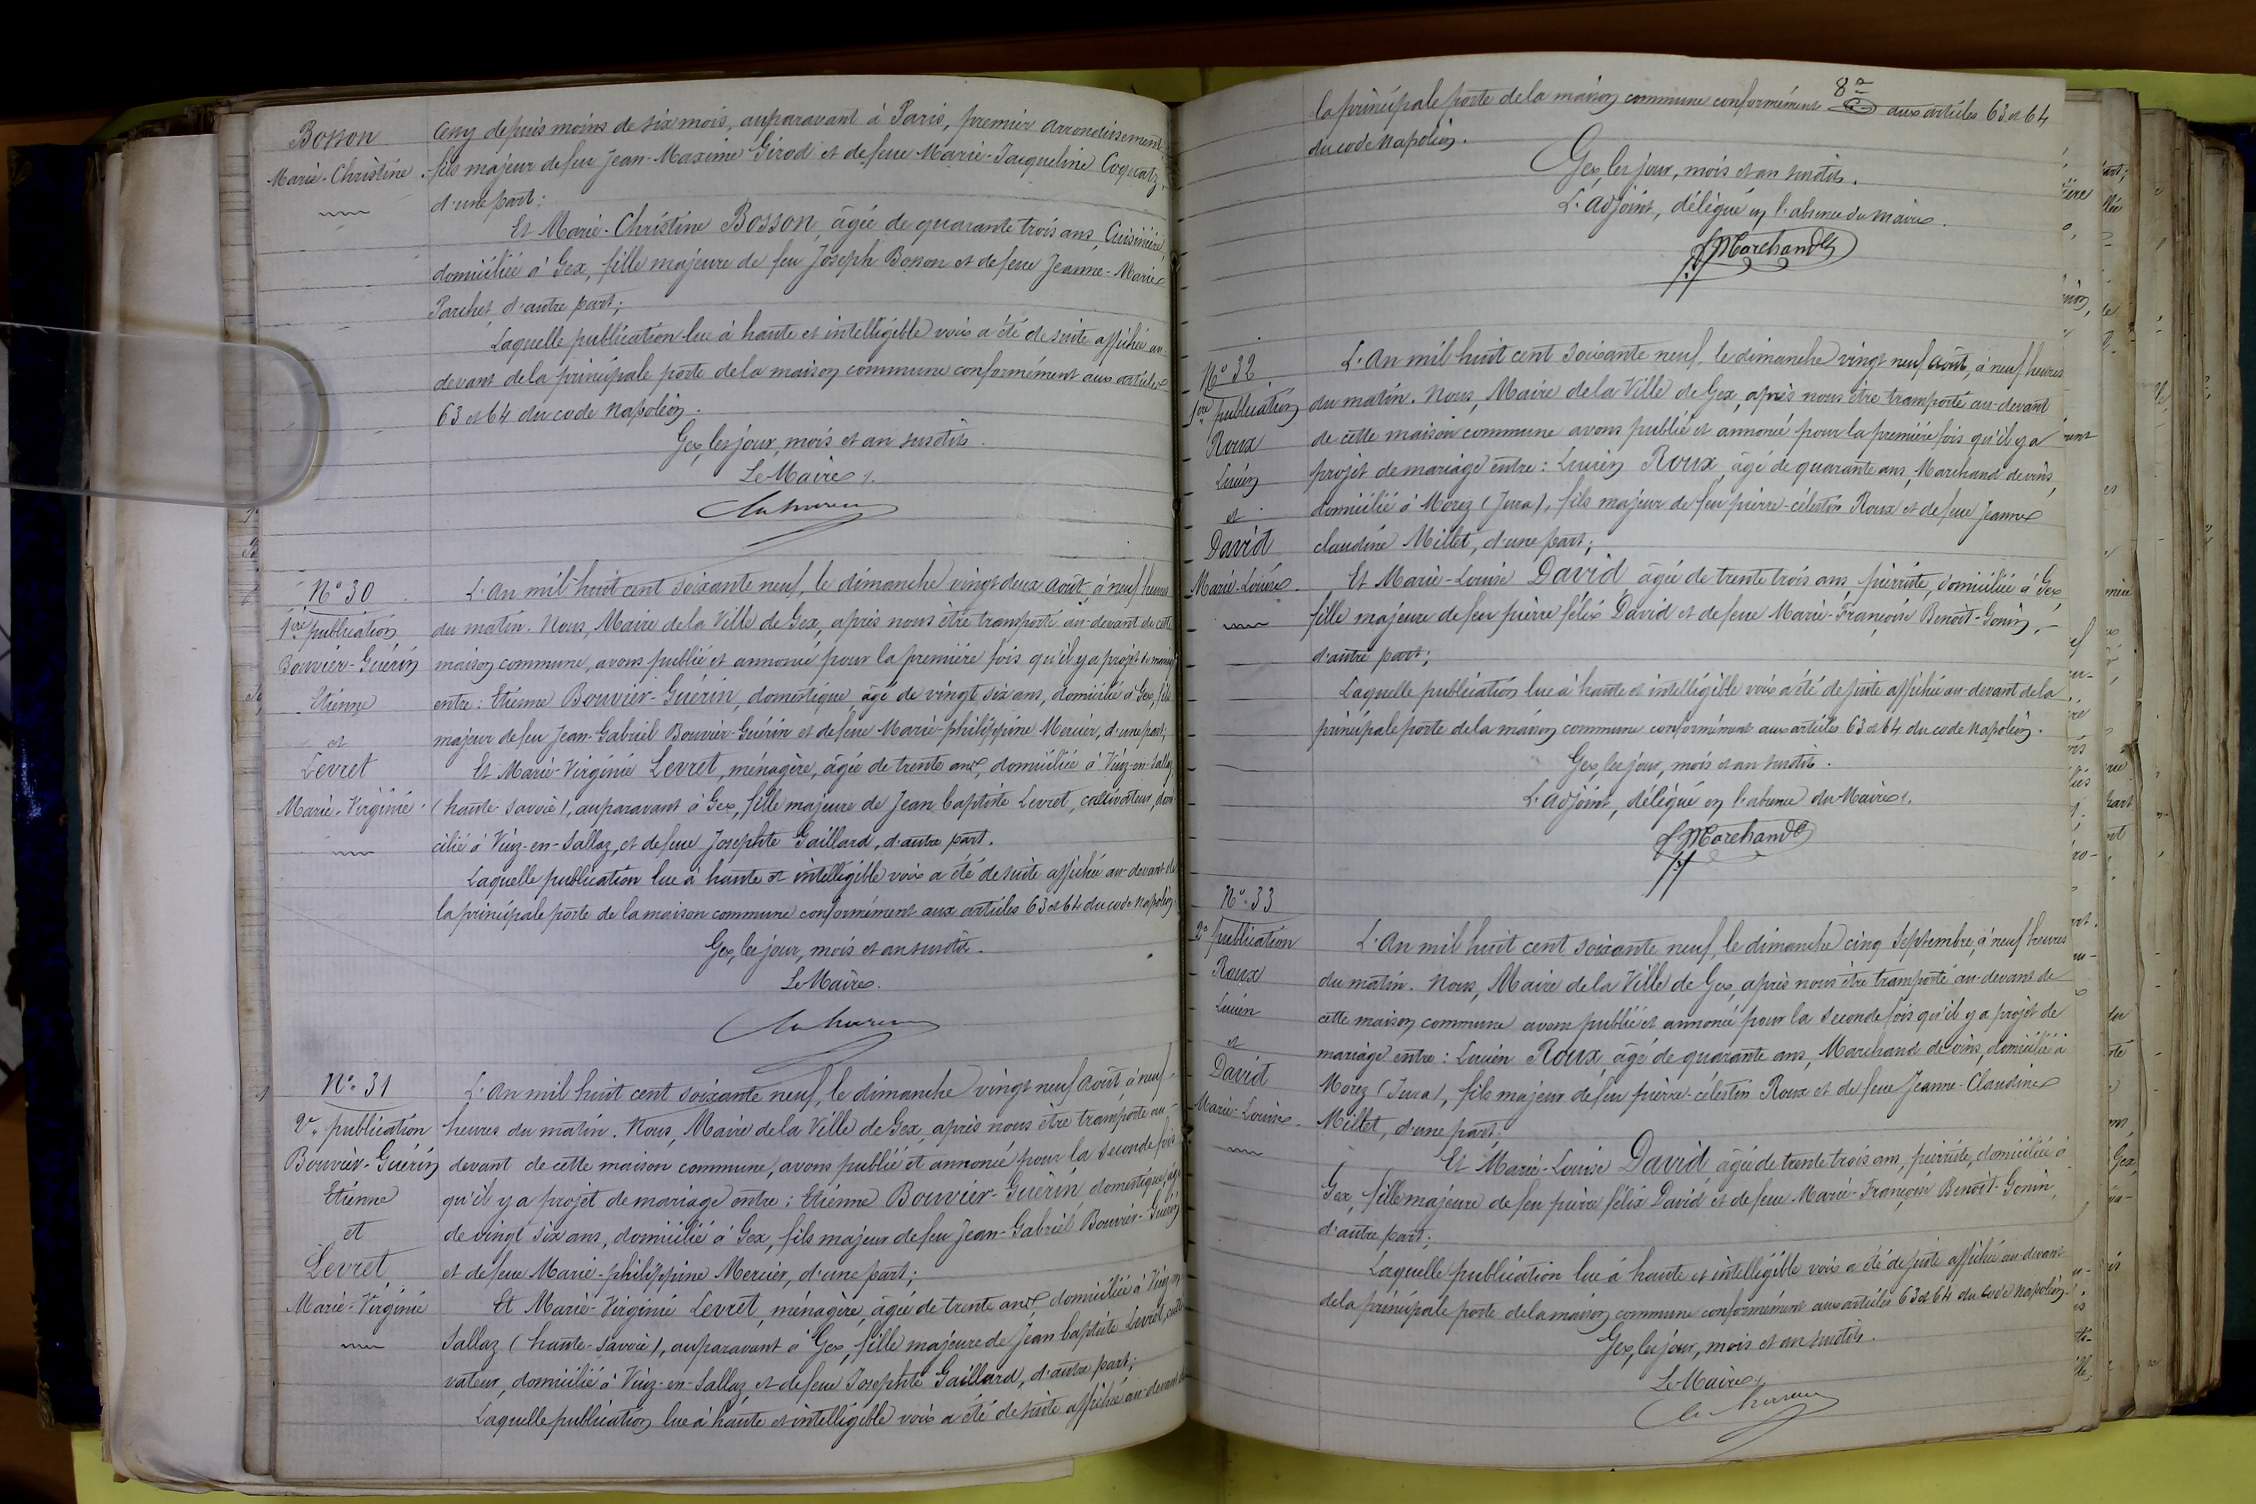 Bosson
Marie-Christine
assy depuis moins de six mois, auparavant à Paris, premier arrondissement,
fils majeur de feu Jean-Maxime Girod et de feue Marie-Jacqueline Coquatz,
d'une part;
Et Marie-Christine Bosson, âgée de quarante trois ans, Cuisinière,
domiciliée à Gex, fille majeure de feu Joseph Bosson et de feue Jeanne-Marie
Parchet d'autre part;
Laquelle publication lue à haute et intelligible voix a été de suite affichée au-
devant de la principale porte de la maison commune conformément aux articles
63 et 64 du code Napoléon.
Gex, les jour, mois et an susdits.
Le Maire
N° 30
1ère publication
Bouvier-Guérin
Etienne
et
Levret
Marie-Virginie
L'an mil huit cent soixante neuf, le dimanche vingt deux août, à neuf heures
du matin. Nous, Maire de la Ville de Gex, après nous être transporté au-devant de cette
maison commune, avons publié et annoncé pour la première fois qu'il y a projet de mariage
entre: Etienne Bouvier-Guérin, domestique, âgé de vingt six ans, domicilié à Gex, fils
majeur de feu Jean-Gabriel Bouvier-Guérin et de feue Marie-philippine Mercier, d'une part;
Et Marie-Virginie Levret, ménagère, âgée de trente ans, domiciliée à Viuz-en-Sallaz
(haute-savoie), auparavant à Gex, fille majeure de Jean baptiste Levret, cultivateur, domi
cilié à Viuz-en-Sallaz, et de feue Josephte Gaillard, d'autre part.
Laquelle publication lue à haute et intelligible voix a été de suite affichée au-devant de
la principale porte de la maison commune conformément aux articles 63 et 64 du code Napoléon.
Gex, les jour, mois et an susdits.
Le Maire.
N° 31
2e publication
Bouvier-Guérin
Etienne
et
Levret
Marie-Virginie
L'an mil huit cent soixante neuf, le dimanche vingt neuf Août, à neuf
heures du matin. Nous, Maire de la Ville de Gex, après nous être transporté au-
devant de cette maison commune, avons publié et annoncé pour la seconde fois
qu'il y a projet de mariage entre: Etienne Bouvier-Guérin domestique, âgé
de vingt six ans, domicilié à Gex, fils majeur de feu Jean-Gabriel Bouvier-Guérin
et de feue Marie-philippine Mercier, d'une part;
Et Marie-Virginie Levret, ménagère, âgée de trente ans, domiciliée à Viuz-en-
Sallaz (haute-savoie), auparavant à Gex, fille majeure de Jean baptiste Levret, culti
vateur, domicilié à Viuz-en-Sallaz et de feue Josephte Gaillard, d'autre part;
Laquelle publication lue à haute et intelligible voix a été de suite affichée au-devant de
8e
la principale porte de la maison commune conformément aux articles 63 et 64
du code Napoléon.
Gex, les jour, mois et an susdits.
L'adjoint, délégué en l'absence du maire.
Marchand
N° 32
1ère publication
Roux
Lucien
et
David
Marie-Louise
L'an mil huit cent soixante neuf, le dimanche vingt neuf Août, à neuf heures
du matin. Nous, Maire de la Ville de Gex, après nous être transporté au-devant
de cette maison commune avons publié et annoncé pour la première fois qu'il y a
projet de mariage entre: Lucien Roux, âgé de quarante ans, Marchand de vins,
domicilié à Morez (Jura), fils majeur de feu pierre-célestin Roux et de feue Jeanne
claudine Millet, d'une part;
Et Marie-Louise David âgée de trente trois ans, pierriste, domiciliée à Gex,
fille majeure de feu pierre félix David et de feue Marie-Françoise Benoît-Gonin,
d'autre part;
Laquelle publication lue à haute et intelligible voix a été de suite affichée au-devant de la
principale porte de la maison commune conformément aux articles 63 et 64 du code Napoléon.
Gex, les jour, mois et an susdits.
L'adjoint, délégué en l'absence du Maire.
Marchand
N° 33
2e publication
Roux
Lucien
et
David
Marie-Louise
L'an mil huit cent soixante neuf, le dimanche cinq Septembre, à neuf heures
du matin. Nous, Maire de la Ville de Gex, après nous être transporté au-devant de
cette maison commune avons publié et annoncé pour la seconde fois qu'il y a projet de
mariage entre: Lucien Roux, âgé de quarante ans, Marchand de vins, domicilié à
Morez (Jura), fils majeur de feu pierre-célestin Roux et de feue Jeanne-Claudine
Millet, d'une part;
Et Marie-Louise David, âgée de trente trois ans, pierriste, domiciliée à
Gex, fille majeure de feu pierre félix David et de feue Marie-Françoise Benoît-Gonin,
d'autre part;
Laquelle publication lue à haute et intelligible voix a été de suite affichée au-devant
de la principale porte de la maison commune conformément aux articles 63 et 64 du code Napoléon.
Gex, les jour, mois et an susdits.
Le Maire